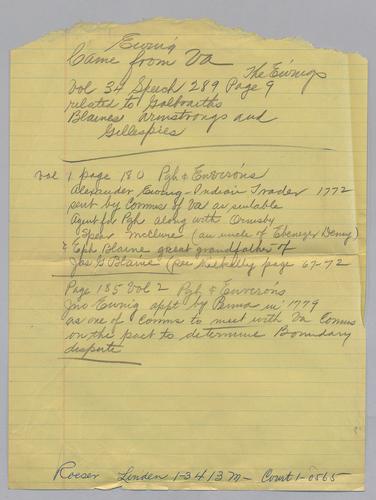 Ewing
Came from Va
The Ewings
Vol 34 Speech 289 Page 9
related to Galbraiths
Blaines Armstrongs and
Gillespies
Vol 1 page 180 Pgh & Environs
Alexander Ewing - Indian Trader 1772
sent by Comms of Va as suitable
Agent for Pgh along with Ormsby
Spear McClure (an uncle of Ebenezer Denny)
& Eph Blaine great grandfather of
Jas G Blaine (see page 67-72
Page 185 Vol 2 Pgh & Environs
Jno Ewing appt by Penna in 1779
as one of Comms to meet with Va Comms
on the pact to determine Boundary
dispute
Roeser Linden 1-3413 M - Court 1-0565